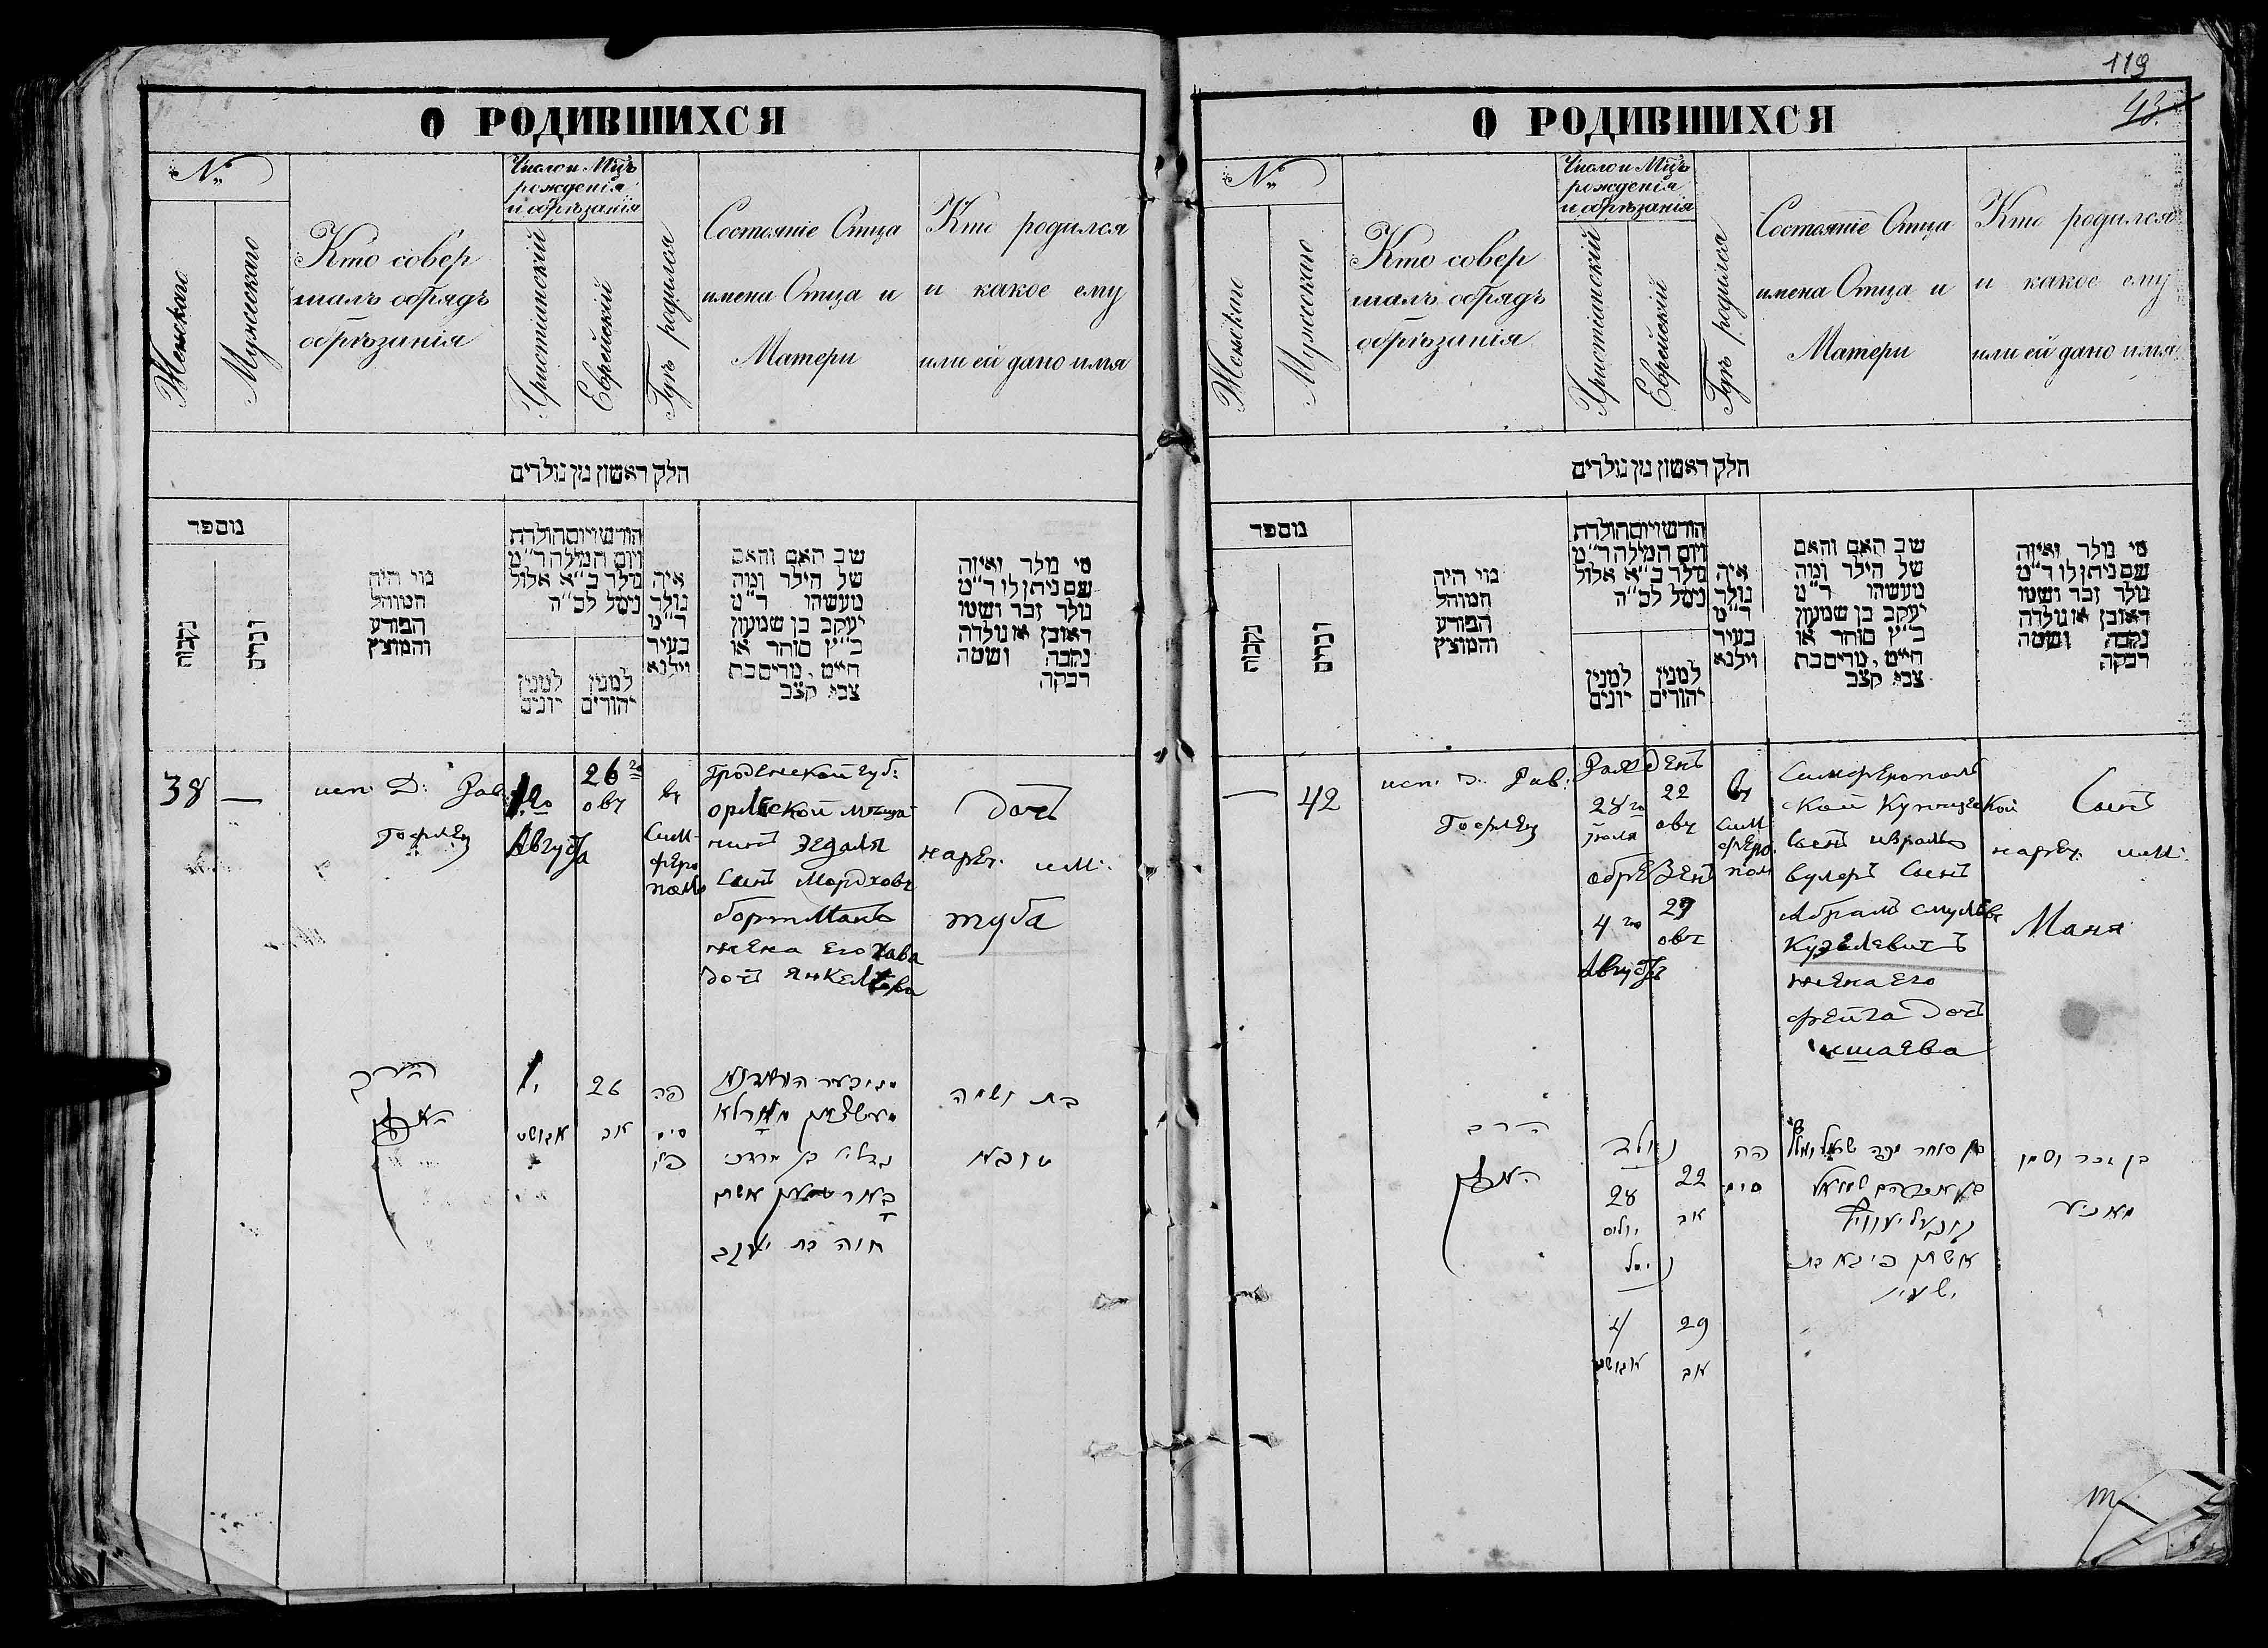 О РОДИВШИХСЯ
№
Женскаго
Мужескаго
Кто совер
шалъ обрядъ
обрѣзанія
Число и Мцъ
рожденія
и обрѣзанія
Христіанскій
Еврейскій
Гдѣ родился
Состояніе Отца
имена Отца и
Матери
Кто родился
и какое ему
или ей дано имя
חלק ראשון מן נולדים
מספר
נקבות
זכרים
מי היה
המוהל
הפורע
והמוצץ
חודש ויום הולדת
ויום המילה ד״מ
נולד כ״א אלול
נימל לכ״ה
למנין
יונים
למנין
יהודים
איה
נולד
ד״מ
בעיר
ווילנא
שם האב והאם
של הילד ומה
מעשהו ד״מ
יעקב בן שמעון
כ״ץ סוחר או
חייט, מרים בת
צבי קצב
מי נולד ואיזה
שם ניתן לו ד״מ
נולד זכר ושמו
ראובן או נולדה
נקבה ושמה
רבקה
38
—
исп. Д: Рав:
Гофлец
1го
Августа
26го
овъ
въ
Сим-
феро
поль
Гроденской губ:
орлеской мещa
нинъ
Сынъ Мордховъ
бортманъ
жена его Хава
дочь Янкелева
Дочь
нареч. им:
туба
הרב
1
אגוסט
26
אב
פה
סימ
פיו
בן מרדכי
אשתו
חוה בת יעקב
בת ושמה
טובא
119
43.
О РОДИВШИХСЯ
№
Женскаго
Мужескаго
Кто совер
шалъ обрядъ
обрѣзанія
Число и Мцъ
рожденія
и обрѣзанія
Христіанскій
Еврейскій
Гдѣ родился
Состояніе Отца
имена Отца и
Матери
Кто родился
и какое ему
или ей дано имя
חלק ראשון מן נולדים
מספר
נקבות
זכרים
מי היה
המוהל
הפורע
והמוצץ
חודש ויום הולדת
ויום המילה ד״מ
נולד כ״א אלול
נימל לכ״ה
למנין
יונים
למנין
יהודים
איה
נולד
ד״מ
בעיר
ווילנא
שם האב והאם
של הילד ומה
מעשהו ד״מ
יעקב בן שמעון
כ״ץ סוחר או
חייט, מרים בת
צבי קצב
מי נולד ואיזה
שם ניתן לו ד״מ
נולד זכר ושמו
ראובן או נולדה
נקבה ושמה
רבקה
—
42
исп. Д. Рав:
Гофлец
Ражденъ
28го
июля
22
овъ
обрезенъ
4го
Августъ
29
овъ
въ
Сим
феро
пол
Симферополь
ской Купческой
Сынъ израиль
вулфъ Сынъ
Абрамъ Смулевъ
Кузелевичъ
жена его
фейга дочь
ишаева
Сынъ
нареч. им:
Маня
הרב
נולד
28
יוליס
22
אב
נימל
4
אגוסט
29
אב
פה
סימ
בן אברהם שמואל
אשתו פיגא בת
ישעיו
בן זכר ושמו
מאניע